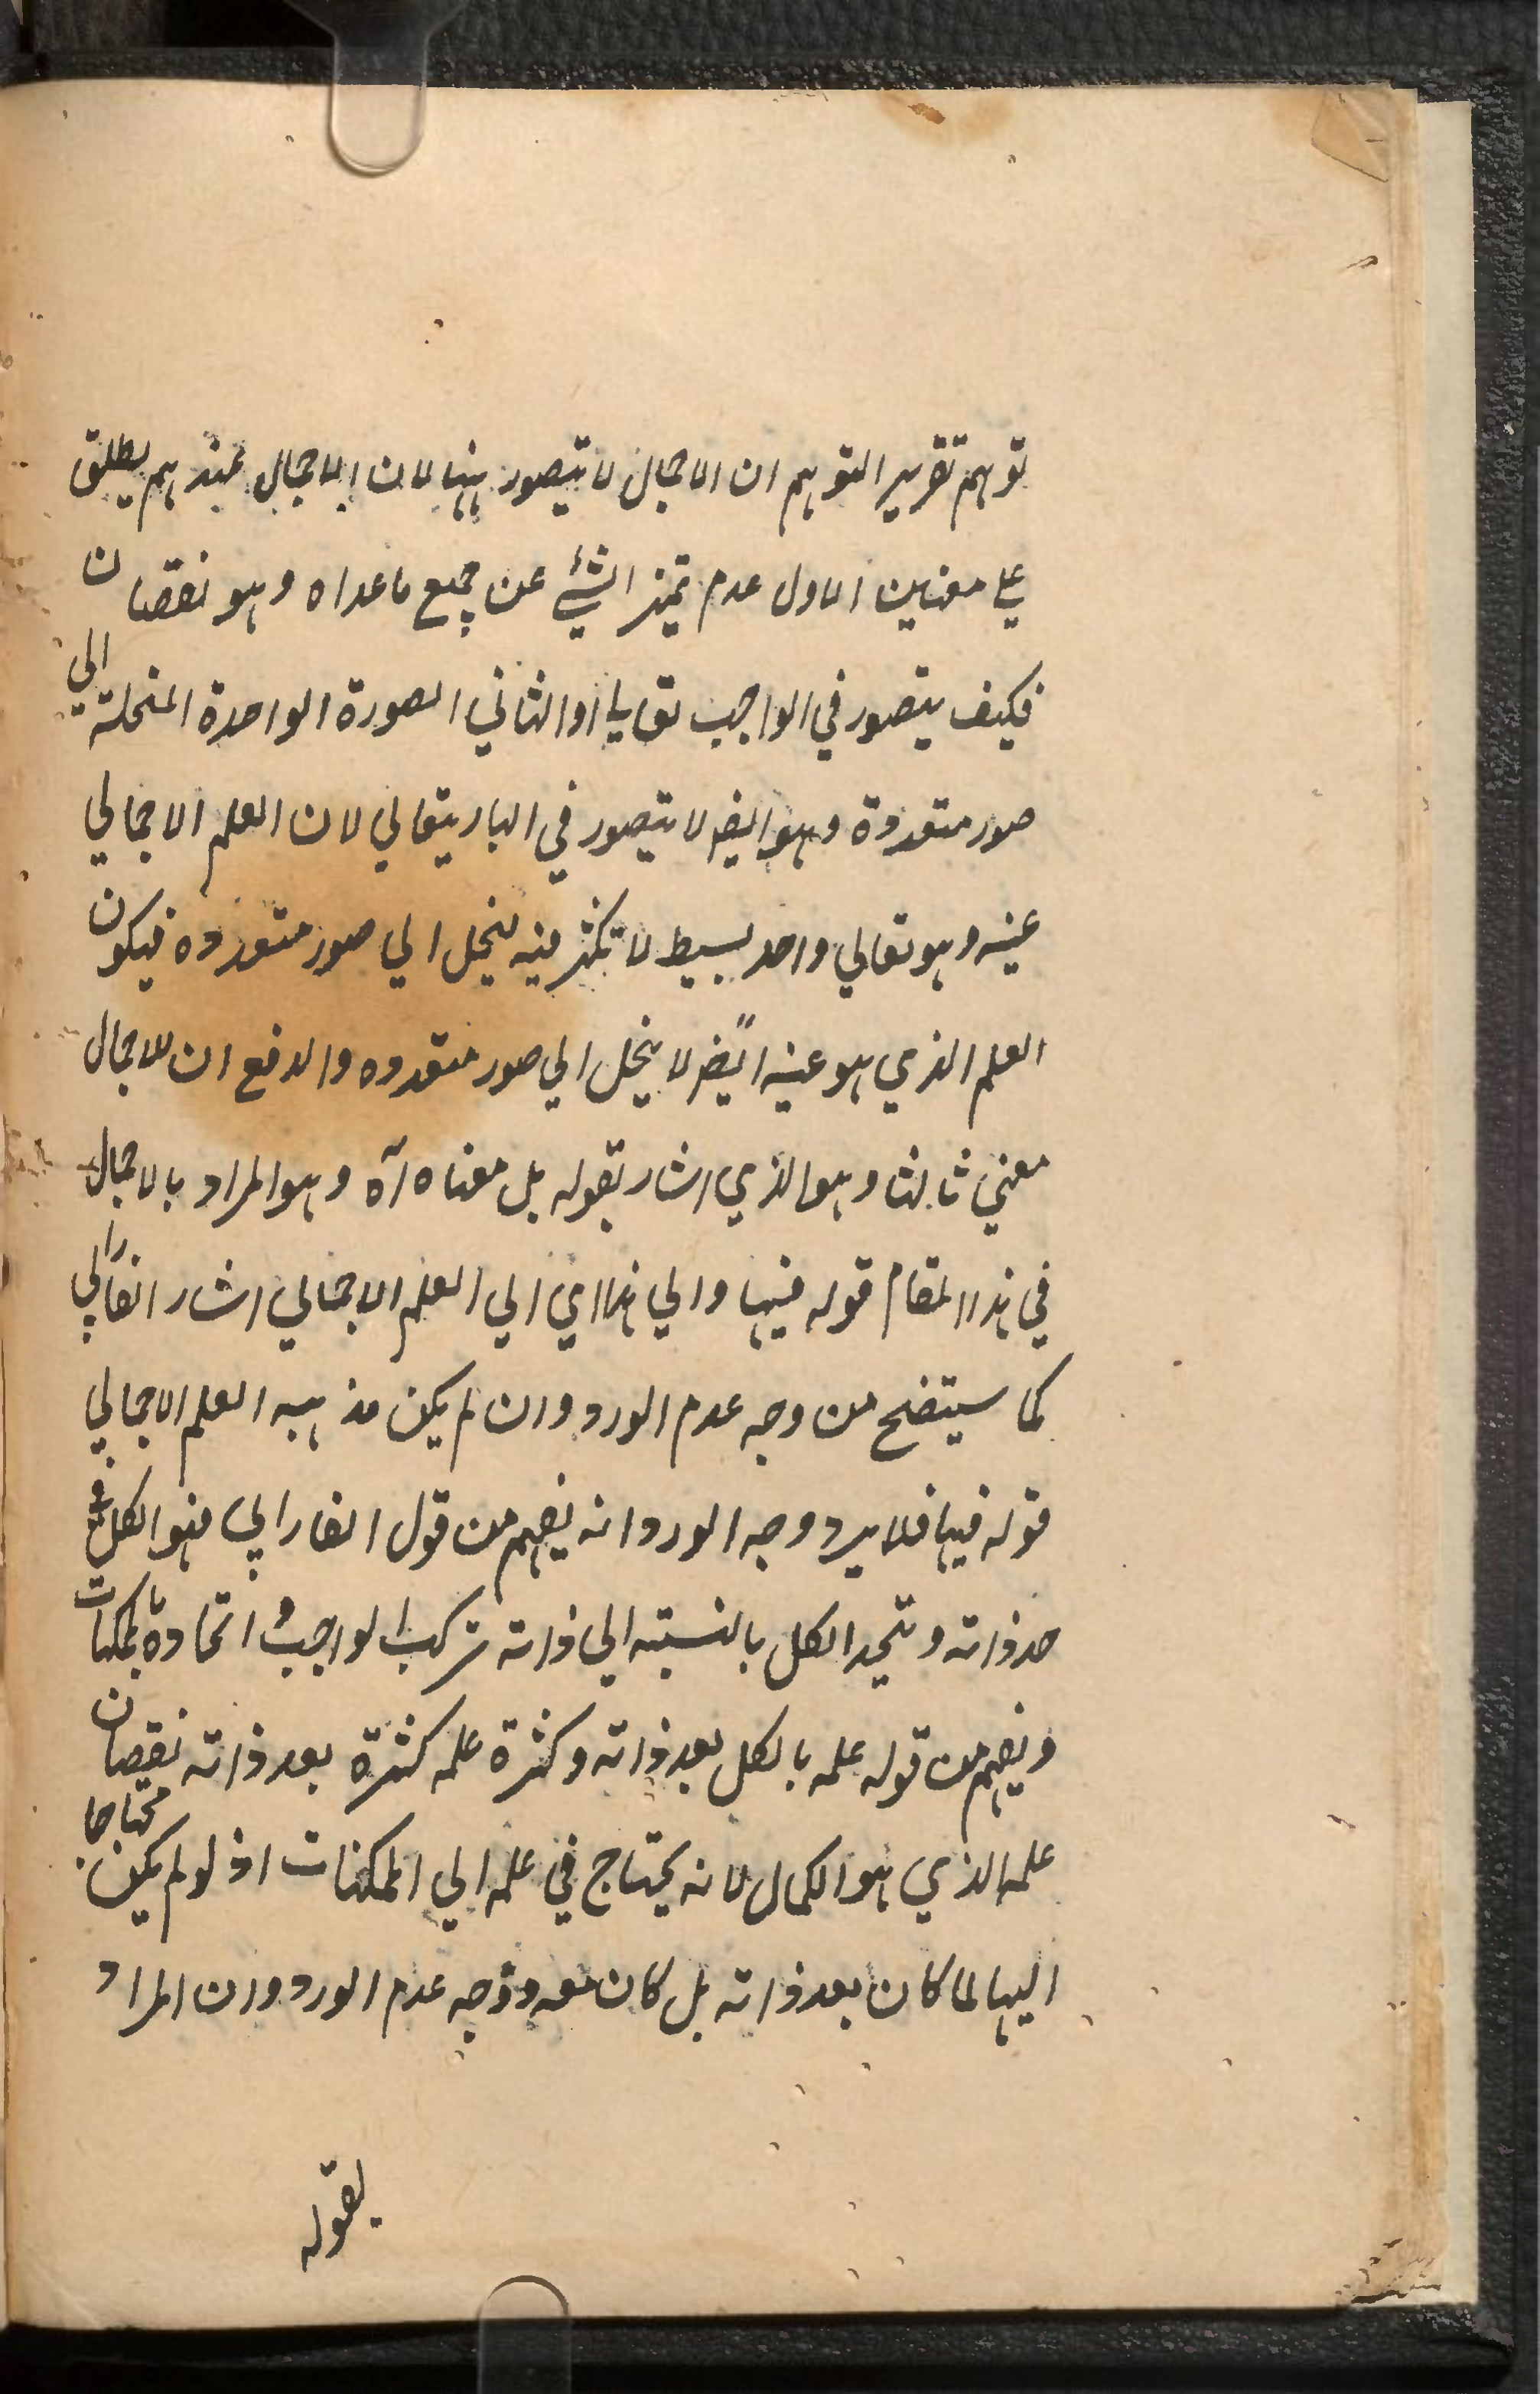 توهم تقرير التوهم ان الاجمال لا يتصور ههنا لان الاجمال عندهم يطلق
علي معنيين الاول عدم تميز الشئ عن جميع ما عداه وهو نقصان
فكيف يتصور في الواجب تعالي والثاني الصورة الواحدة المنحلة الي
صور متعددة وهو ايضا لا يتصور في الباري تعالي لان العلم الاجمالي
عينه وهو تعالي واحد بسيط لا تكثر فيه ينحل الي صور متعدده فيكون
العلم الذي هو عينه ايضًا لا ينحل الي صور متعدده والدفع ان للاجمال
معني ثالثا وهو الذي اشار بقوله بل معناه آه وهو المراد بالاجمال
في هذا المقام قوله فيها والي هذا اي الي العلم الاجمالي اشار الفارابي
كما سيتضح من وجه عدم الورود وان لم يكن مذهبه العلم الاجمالي
قوله فيها فلا يرد وجه الورود انه يفهم من قول الفارابي فهو الكل في
حد ذاته و يتحد الكل بالنسبته الي ذاته تركب الواجب و اتحاده بالممكنات
ويفهم من قوله علمه بالكل بعد ذاته وكثرة علمه كثرة بعد ذاته نقصان
علمه الذي هو الكمال لانه يحتاج في علمه الي الممكنات اذ لو لم يكن محتاجا
اليها لما كان بعد ذاته بل كان معه ووجه عدم الورود ان المراد
بقوله